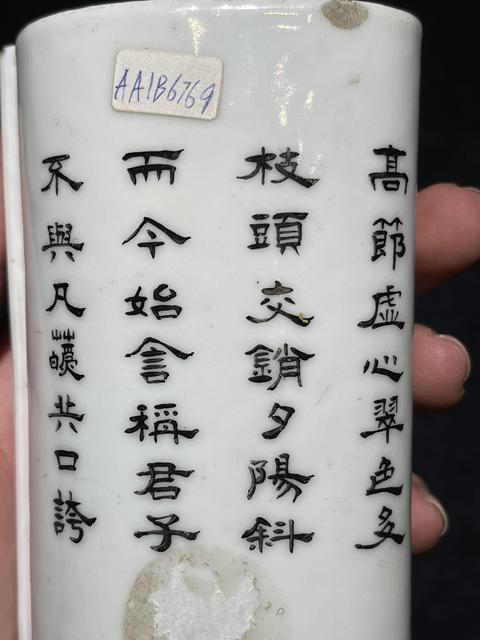 AA1B6769
高節虛心翠色多
枝頭交銷夕陽斜
而今始言稱君子
不與凡共口誇